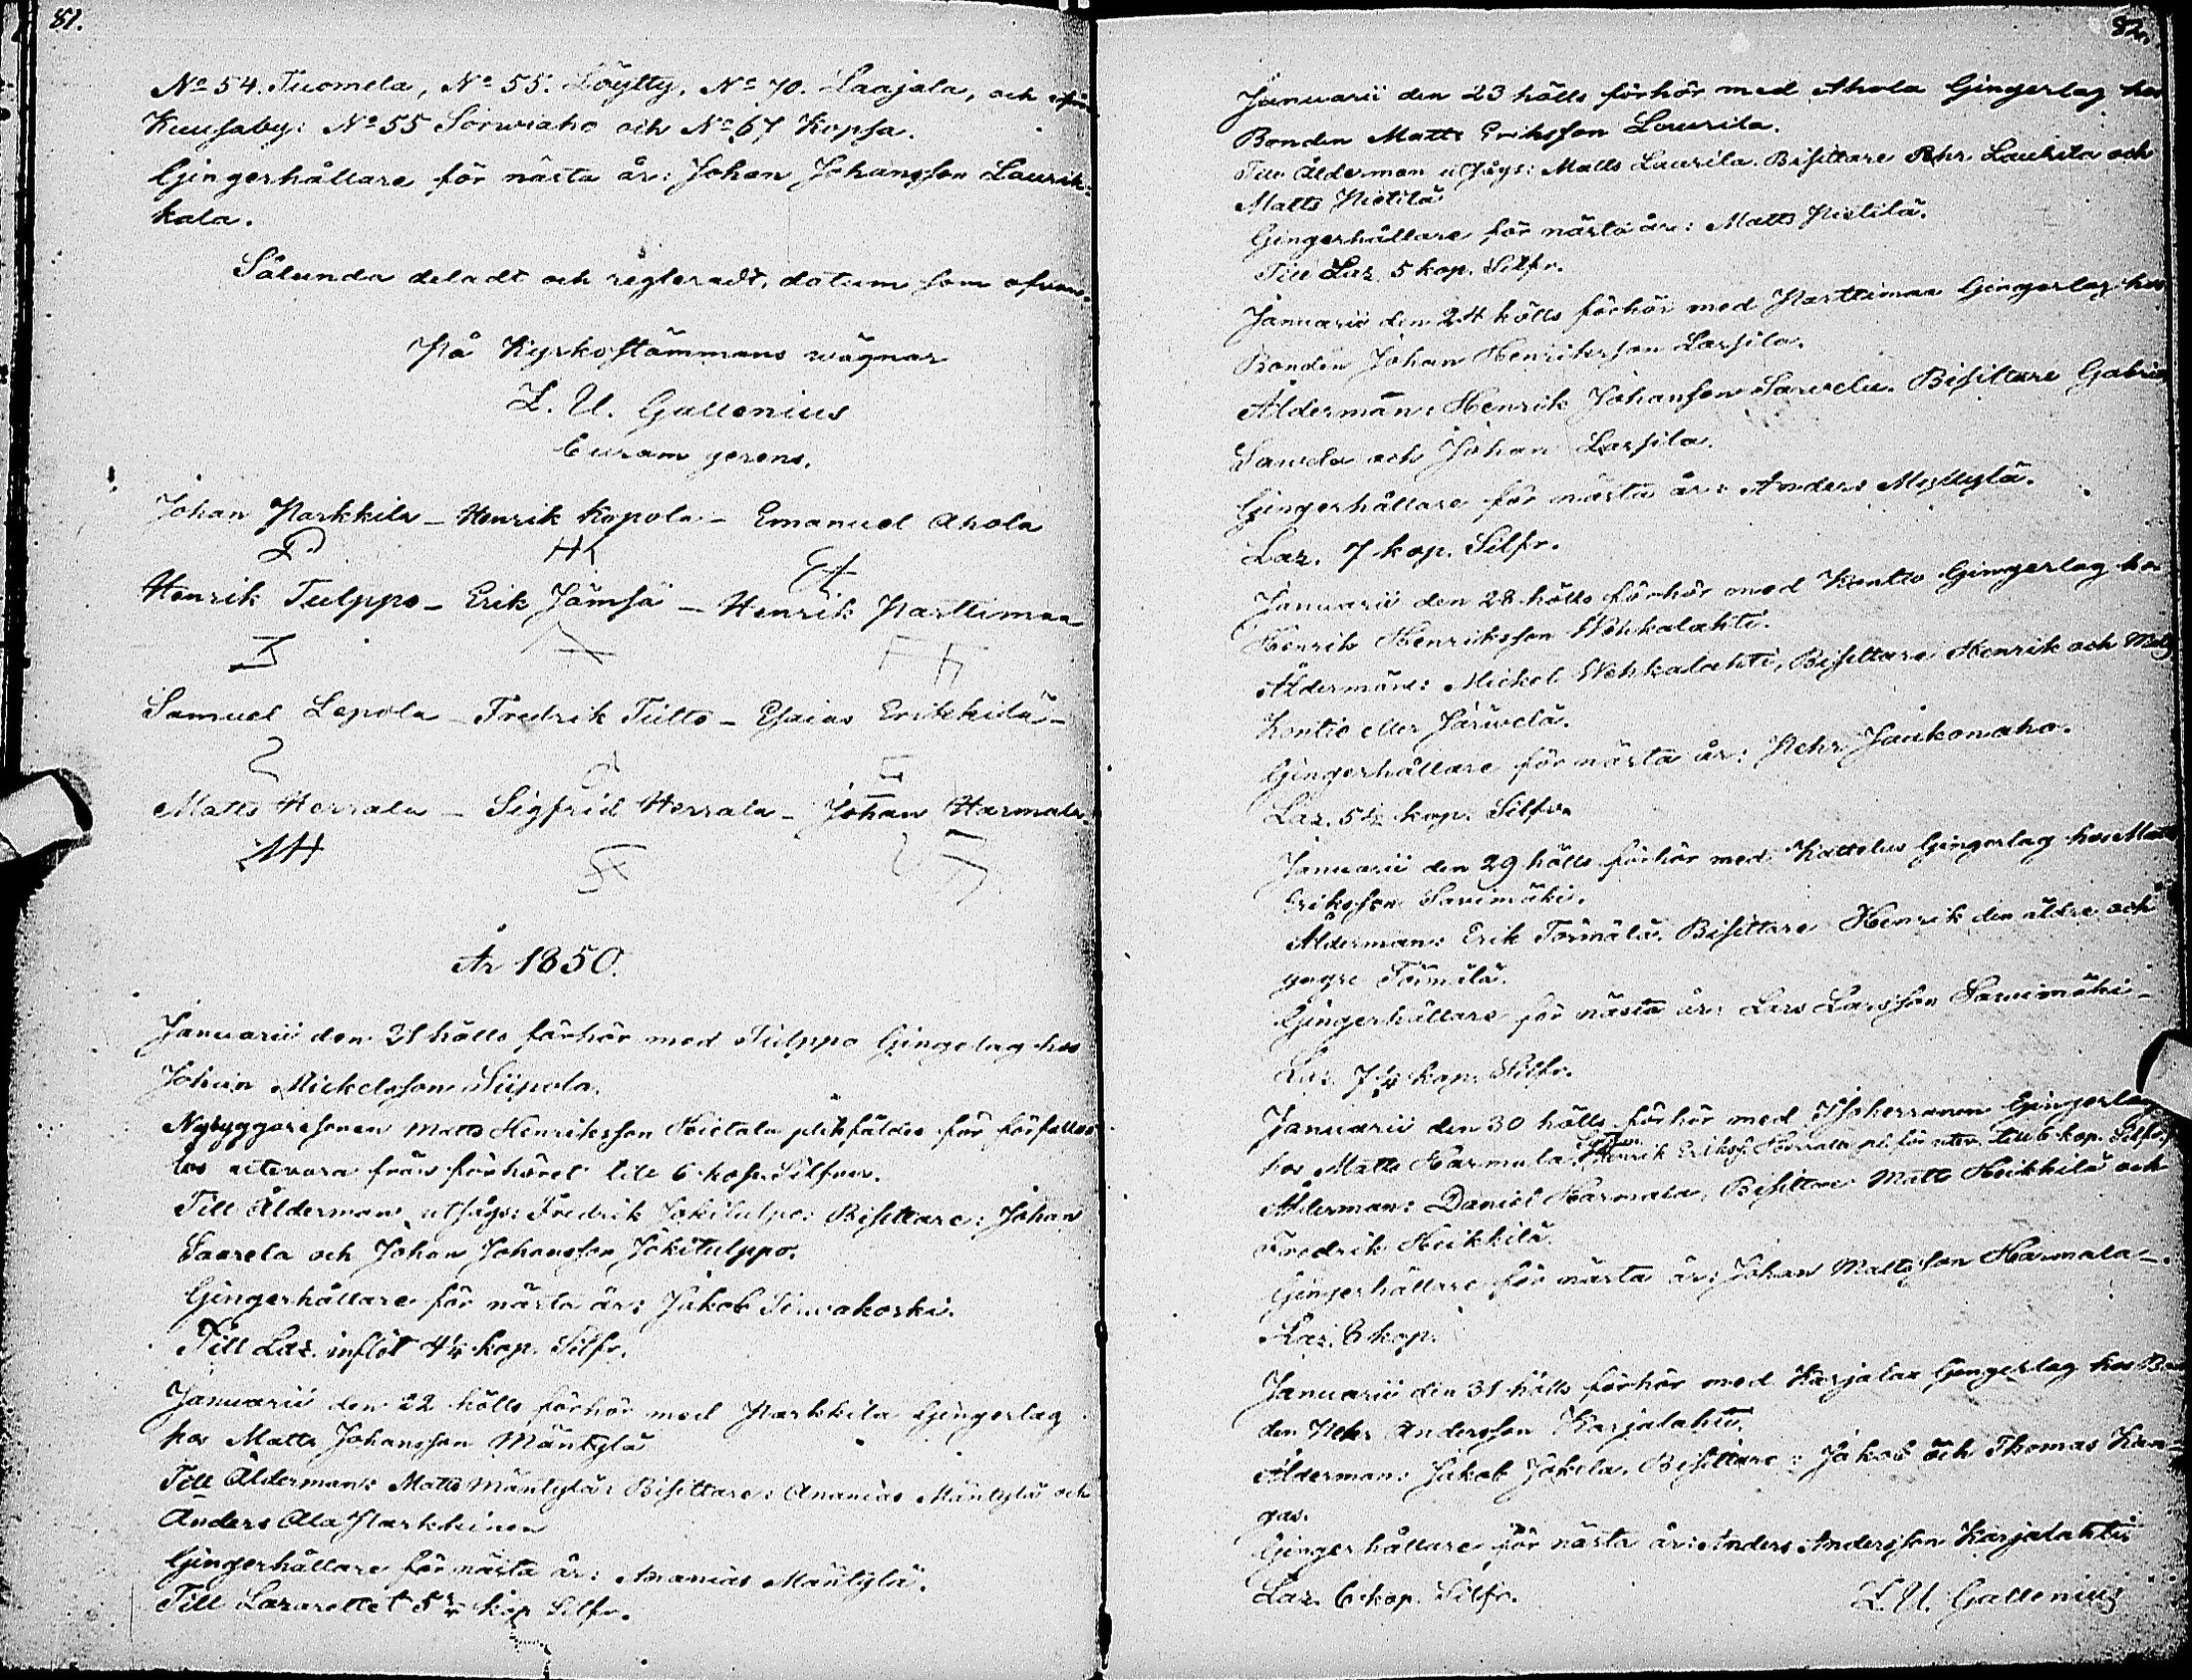 81.
No 54. Tuomela, No 55. Löytty, No 70. Laajala, och ifrån
Kuusaby: No 55 Sorwiaho och No 67 Kopsa.
Gingerhållare för nästa år: Johan Johansson Laurik=
kala.
Sålunda deladt och regleradt, datum som ofvan.
På Kyrkostämmans wägnar
L. U. Gallenius
Curam gerens.
Johan Parkkila – Henrik Kopola – Emanuel Ahola
P HK EA
Henrik Tulppo – Erik Jämsä – Henrik Parttimaa
Samuel Lepola – Fredrik Tulto – Esaias Erikkilä –
Matts Herrala – Sigfrid Herrala – Johan Harmala
MH
År 1850.
Januarii den 21 hölls förhör med Tulppo Gingelag hos
Johan Mickelsson Siipola.
Nybyggaresonen Matts Henriksson Hietala plikfäldes för förfallo
lös utevaro från förhöret till 6 kop. Silfver.
Till Ålderman utsågs: Fredrik Jokitulpo: Bisittare: Johan
Saarela och Johan Johansson Jokitulppo.
Gingerhållare för nästa år: Jakob Tirwakoski.
Till Laz. inflöt 4¼ kop. Silfr.
Januarii den 22 hölls förhör med Parkkila Gingerlag
hos Matts Johansson Mäntylä
Till Ålderman: Matts Mäntylä: Bisittare: Ananias Mäntylä och
Anders Ala Parkkinen
Gingerhållare för nästa år: Ananias Mäntylä.
Till Lazarettet 5 kop Silfr.
82.
Januarii den 23 hölls förhör med Ahola Gingerlag hos
Bonden Matts Eriksson Laurila.
Till Ålderman utsågs: Matts Laurila. Bisittare Pehr Laurila och
Matts Pietilä
Gingerhållare för nästa år: Matts Pietilä.
Till Laz 5 kop. Silfr.
Januarii den 24 hölls förhör med Parttimaa Gingerlag hos
Bonden Johan Henriksson Lassila.
Ålderman: Henrik Johansson Sawela. Bisittare Gabriel
Sawela och Johan Lassila.
Gingerhållare för nästa år: Anders Myllylä.
Laz. 7 kop. Silfr.
Januarii den 28 hölls förhör med Kontio Gingerlag hos
Henrik Henriksson Wehkalahti.
Ålderman: Mickel Wehkalahti, Bisittare Henrik och Matts
Kontio eller Järwelä.
Gingerhållare för nästa år: Pehr Jaukonaho.
Laz. 5½ kop. Silfr.
Januarii den 29 hölls förhör med Kattelus Gingerlag hos Matts
Eriksson Savimäki.
Ålderman: Erik Törmälä. Bisittare Henrik den äldre och
yngre Törmälä.
Gingerhållare för nästa år: Lars Larsson Sawimäki –
Laz. 7¼ kop. Silfr.
Januarii den 30 hölls förhör med Isoherranen Gingerlag
hos Matts Harmala. Henrik Eriks. Herrala pl. för utev. till 6 kop. Silfr.
Ålderman: Daniel Harmala, Bisittare Matts Heikkilä och
Fredrik Heikkilä.
Gingerhållare för nästa år: Johan Mattsson Harmala –
Laz. 6 kop.
Januarii den 31 hölls förhör med Karjalax Gingerlag hos Bon
den Pehr Andersson Karjalahti.
Ålderman: Jakob Jokela. Bisittare: Jakob och Thomas Kan=
gas.
Gingerhållare för nästa år: Anders Andersson Karjalahti
Laz. 6 kop. Silfr.
L. U. Gallenius